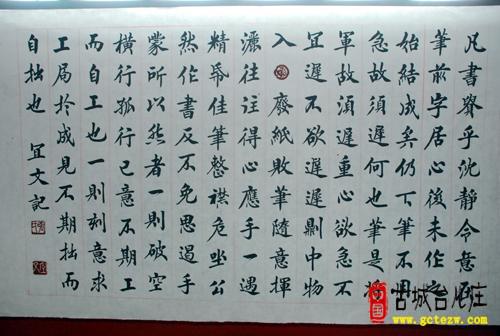 凡書貴乎沈靜令意在
筆前字居心後未作
始結成矣仍下筆不用
急故須遲何也筆是將
軍故須遲重心欲急不
宜遲不欲遲則中物
入 廢紙敗筆隨意揮
灑往往得心應手一遇
精帋佳筆整襟危坐公
然作書反不免思遏手
蒙所以然者一則破空
橫行孤行己意不期工
而自工也一則刻意求
工局於成見不期拙而
自拙也 宜文記
古城台儿庄
www.gctezw.com